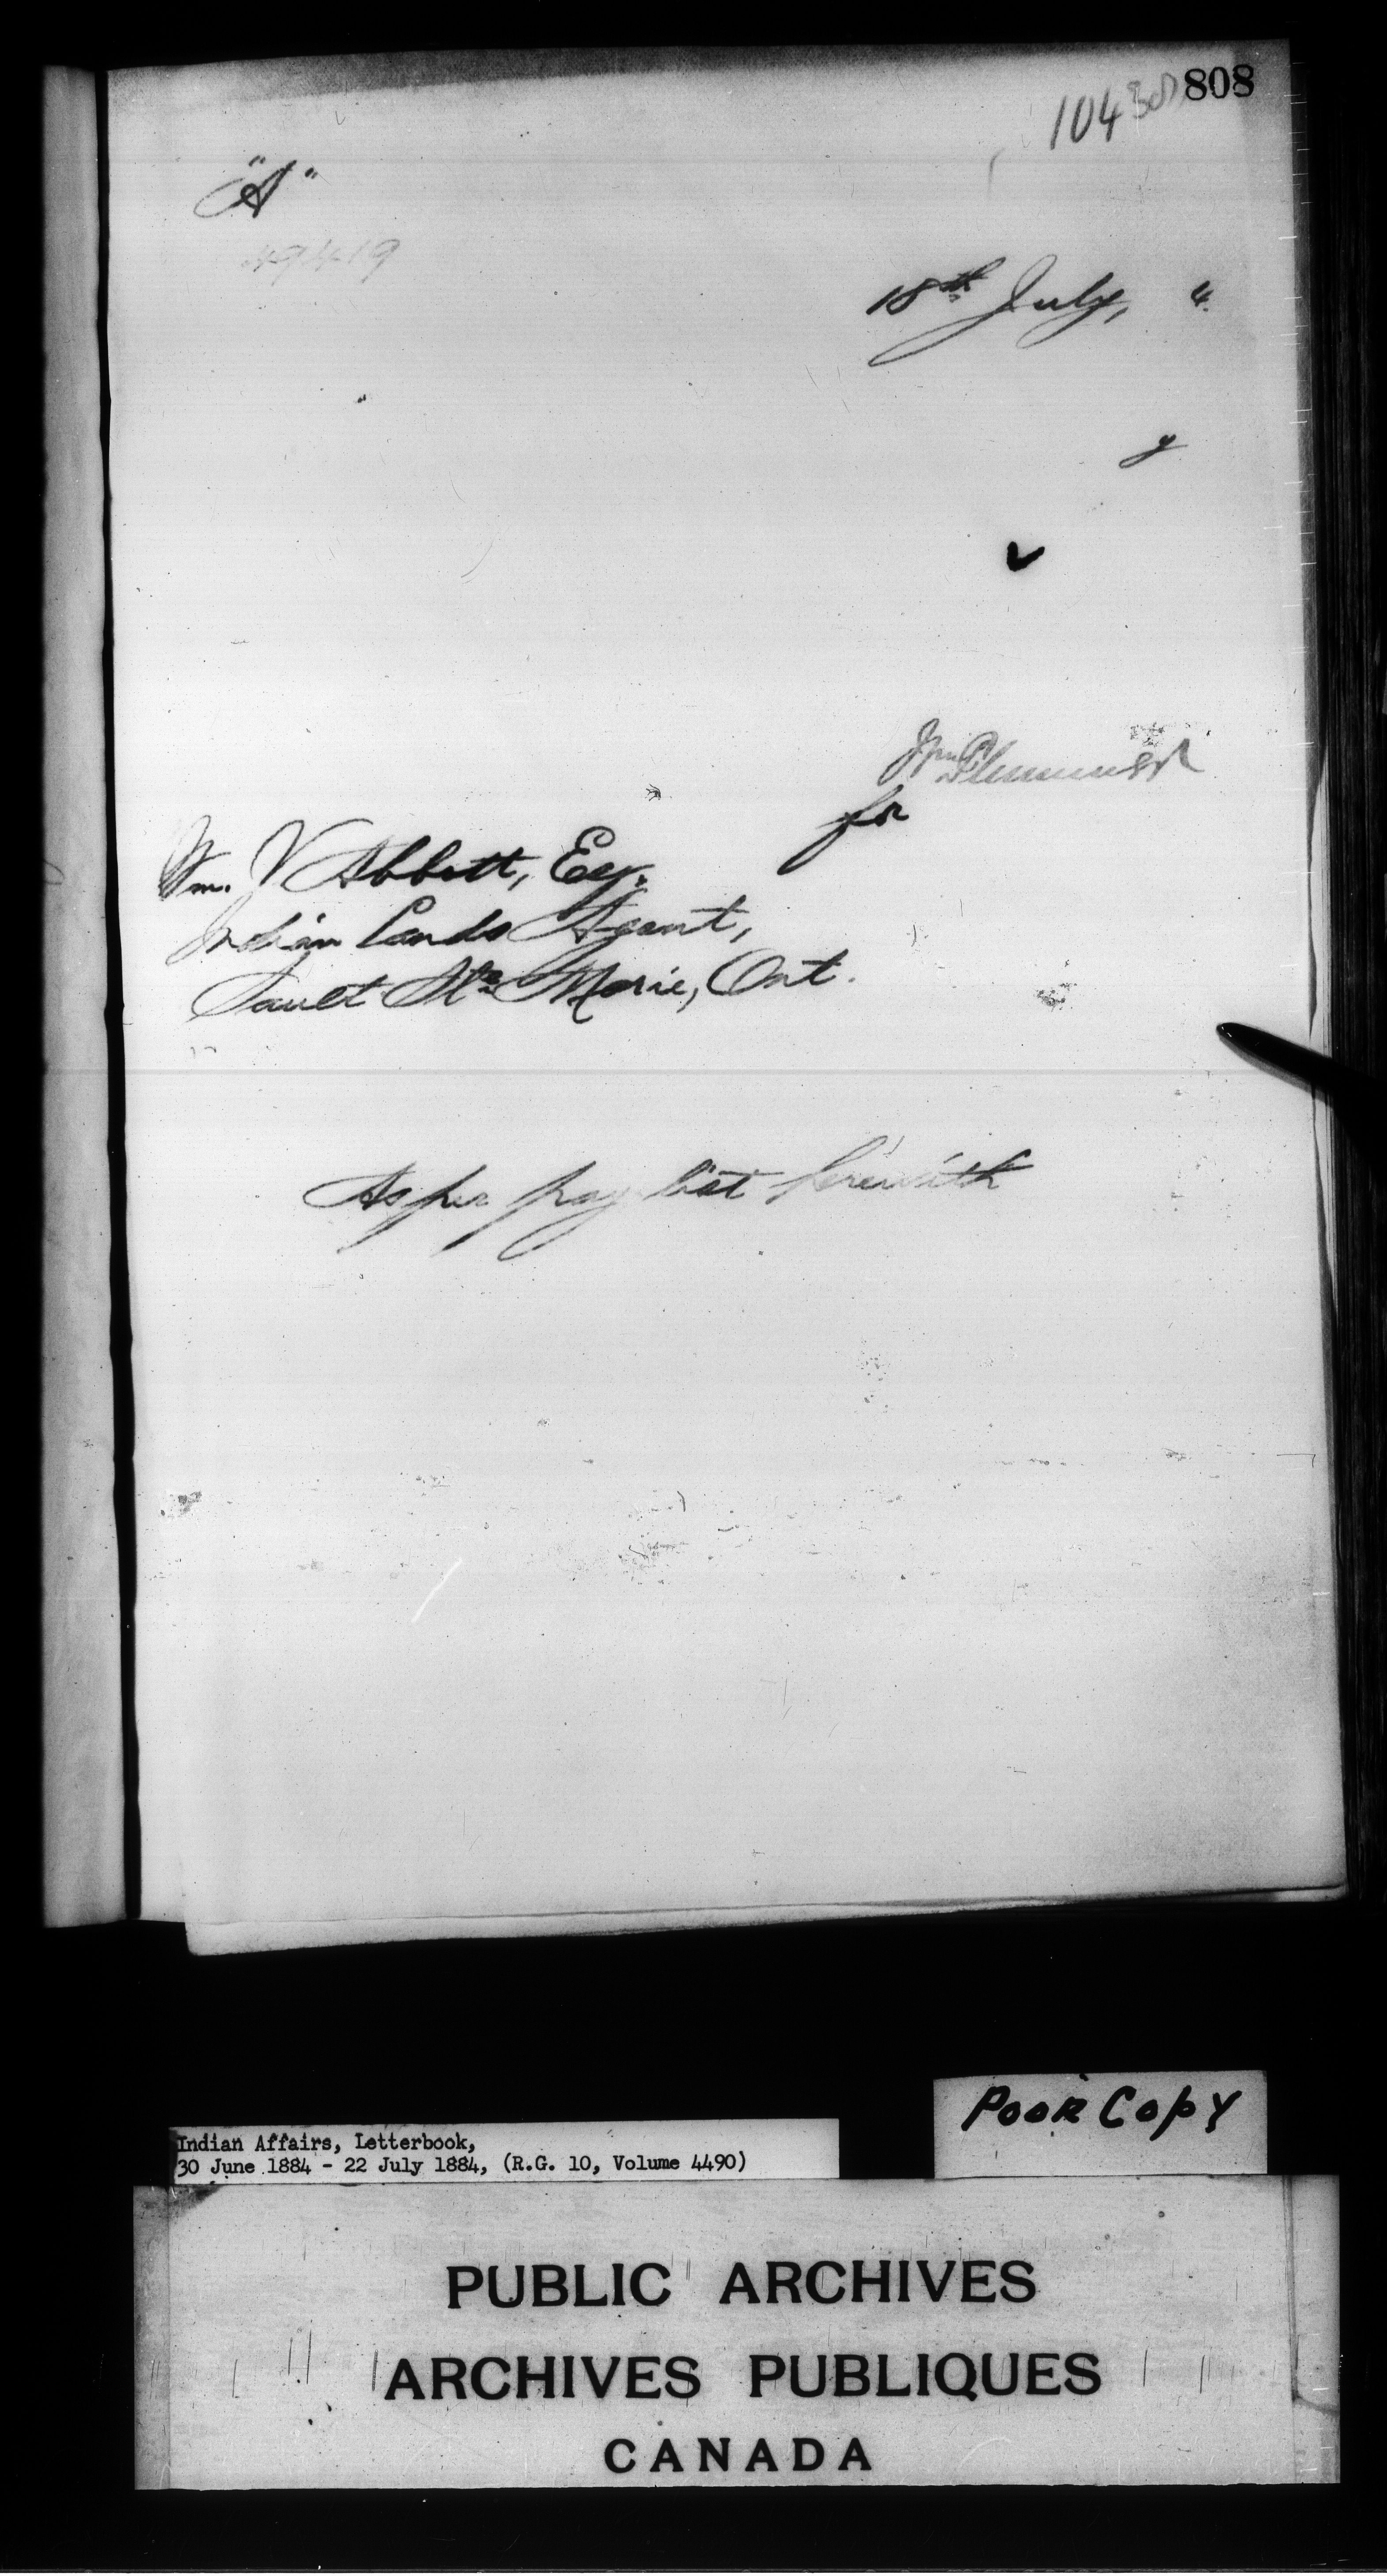 808
"A"
49419
18th July, 4.
y
Plummer
for
Wm. V Abbott, Esq.
Indian Lands Agent,
Sault Ste Marie, Ont.
As per pay list herewith
Poor Copy
Indian Affairs, Letterbook,
30 June 1884 - 22 July 1884, (R.G. 10, Volume 4490)
PUBLIC ARCHIVES
ARCHIVES PUBLIQUES
CANADA